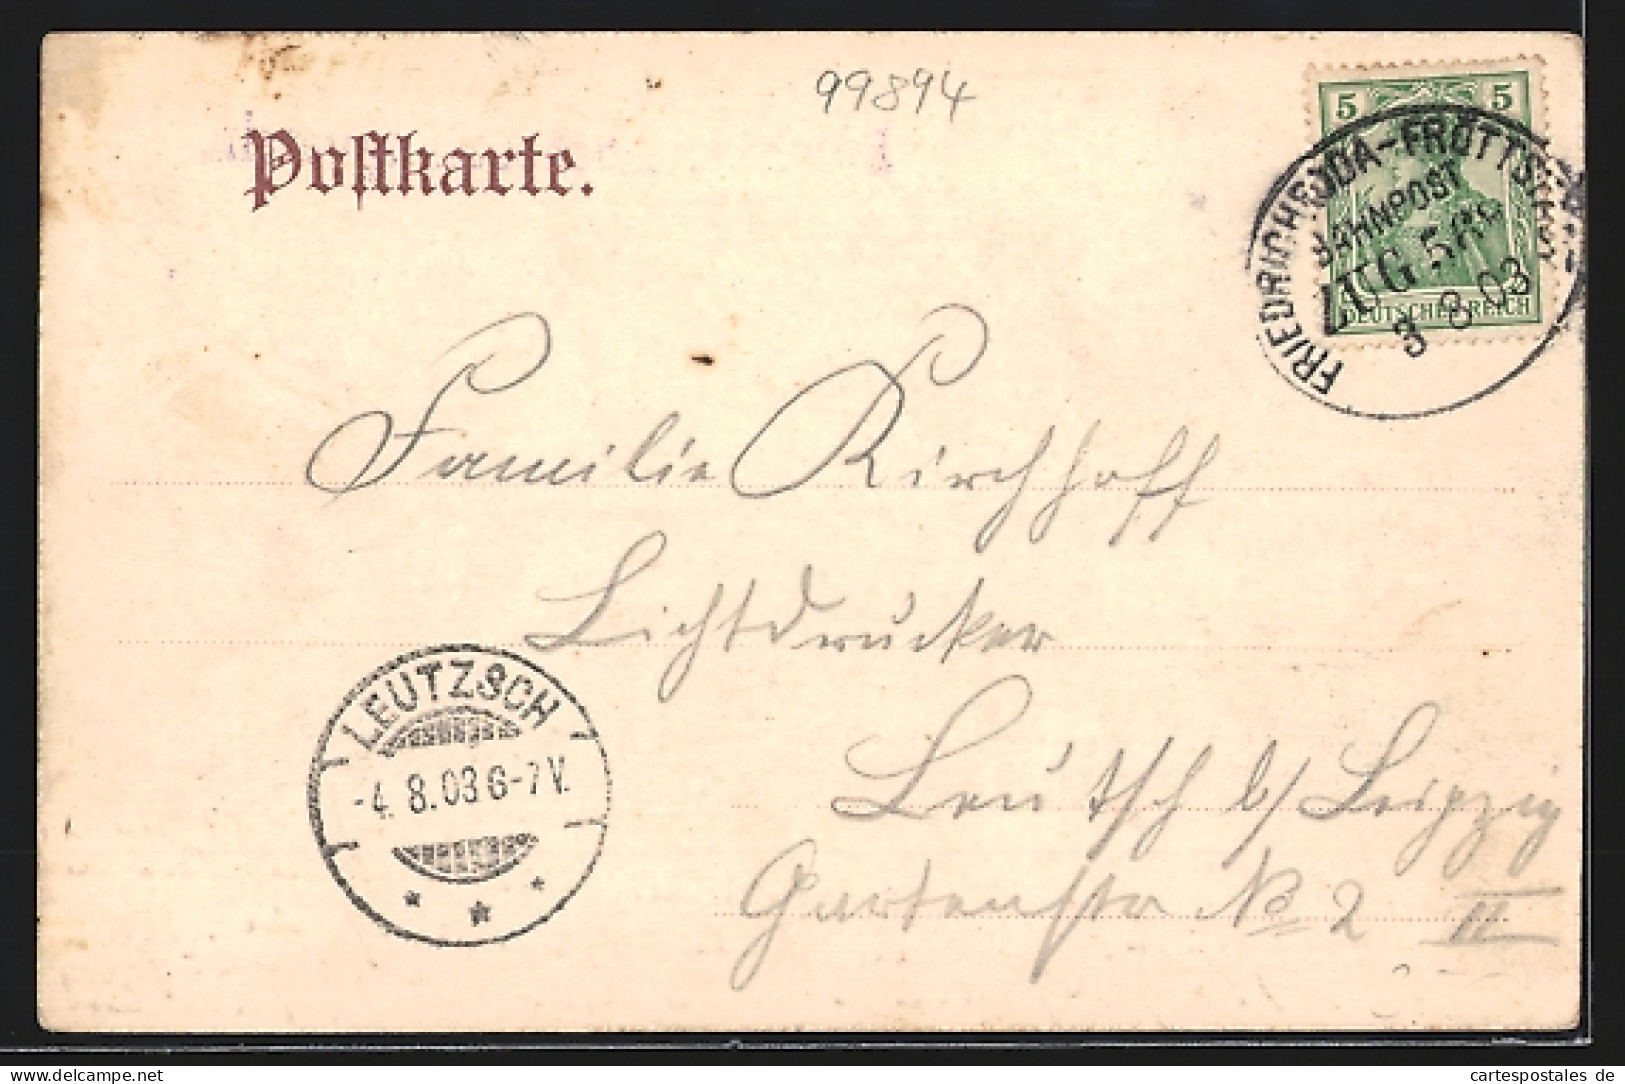 99894
Postkarte.
5 5
DEUTSCHES REICH
BAHNPOST
ZUG
3 8 03
Familie Kirchhoff
Lichtdrucker
Leutsch b/ Leipzig
Gartenstr No 2 II
LEUTZSCH
-4. 8.03 6-7 V.
www.cartespostales.de
cartespostales de